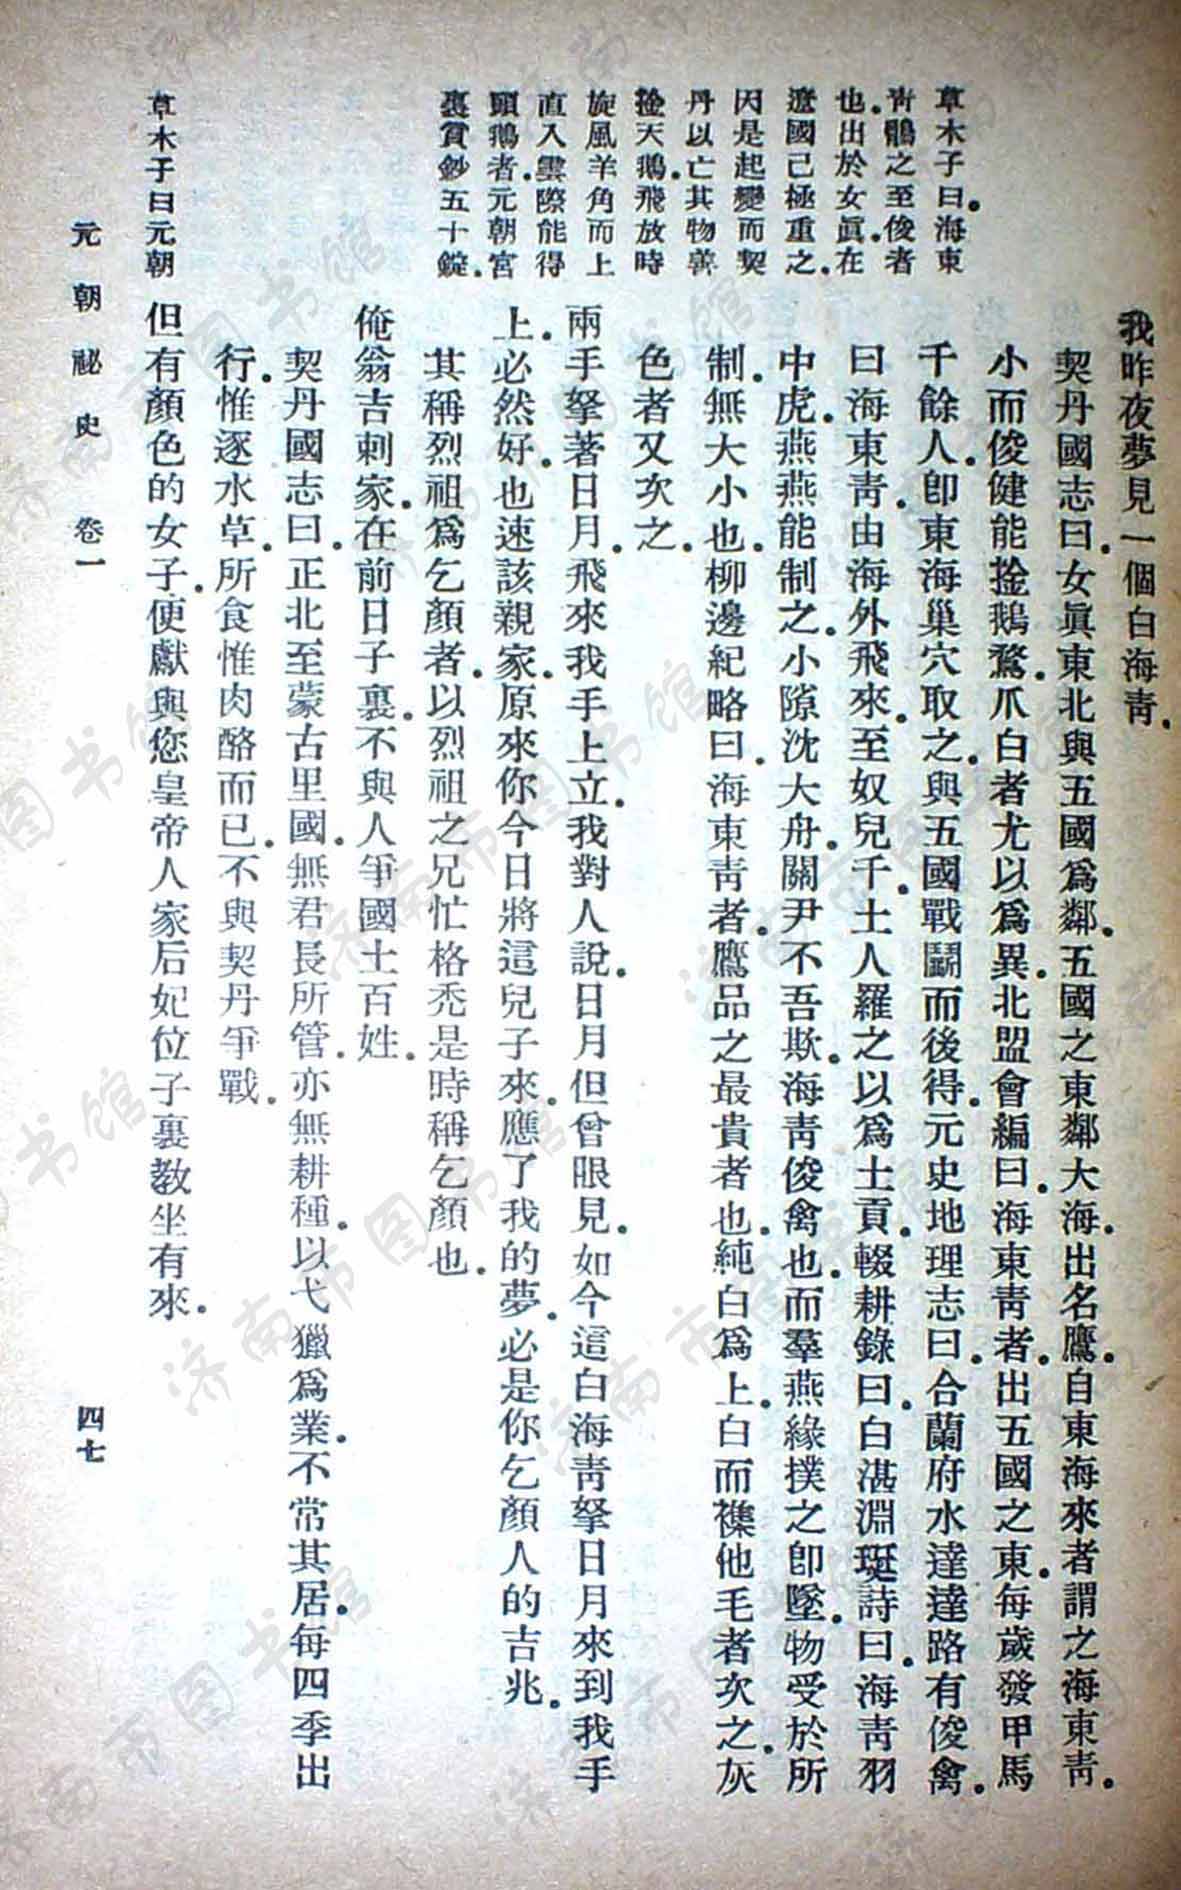 草木子曰。海東
青。鶻之至俊者
也。出於女眞。在
遼國已極重之。
因是起變而契
丹以亡。其物善
擒天鵝。飛放時
旋風羊角而上
直入雲際。能得
頭鵝者。元朝宮
裏賞鈔五十錠。
我昨夜夢見一個白海青。
契丹國志曰。女眞東北與五國爲鄰。五國之東鄰大海。出名鷹。自東海來者。謂之海東青。
小而俊健。能擒鵝鶩。爪白者尤以爲異。北盟會編曰。海東青者。出五國之東。每歲發甲馬
千餘人。卽東海巢穴取之。與五國戰鬭而後得。元史地理志曰。合蘭府水達達路有俊禽。
曰海東青。由海外飛來。至奴兒千。土人羅之以爲土貢。輟耕錄曰。白湛淵珽詩曰。海青羽
中虎。燕燕能制之。小隙沈大舟。關尹不吾欺。海青俊禽也。而羣燕緣撲之卽墜。物受於所
制。無大小也。柳邊紀略曰。海東青者。鷹品之最貴者也。純白爲上。白而襍他毛者次之。灰
色者又次之。
兩手拏著日月。飛來我手上立。我對人說。日月但曾眼見。如今這白海青拏日月來到我手
上。必然好。也速該親家。原來你今日將這兒子來。應了我的夢。必是你乞顏人的吉兆。
其稱烈祖爲乞顏者。以烈祖之兄忙格禿是時稱乞顏也。
俺翁吉剌家。在前日子裏。不與人爭國土百姓。
契丹國志曰。正北至蒙古里國。無君長所管。亦無耕種。以弋獵爲業。不常其居。每四季出
行。惟逐水草。所食惟肉酪而已。不與契丹爭戰。
草木子曰元朝
但有顏色的女子。便獻與您皇帝人家后妃位子裏敎坐有來。
元朝祕史 卷一 四七